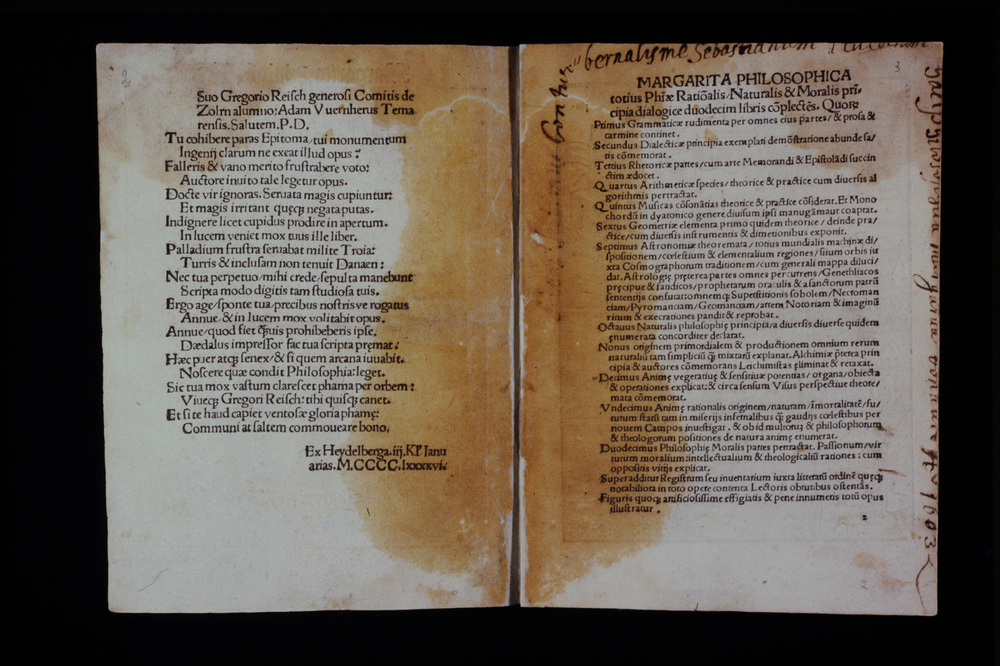 2
Suo Gregorio Reisch generosi Comitis de
Zolrn alumno: Adam Vuernherus Tema
rensis. Salutem. P. D.
Tu cohibere paras Epitoma, tui monumentum
Ingenij clarum ne exeat illud opus?
Falleris & vano merito frustrabere voto:
Auctore inuito tale legetur opus.
Docte vir ignoras. Seruata magis cupiuntur:
Et magis irritant quęcꝗ negata putas.
Indignere licet cupidus prodire in apertum.
In lucem veniet mox tuus ille liber.
Palladium frustra seruabat milite Troia:
Turris & inclusam non tenuit Danaen:
Nec tua perpetuo/mihi crede/sepulta manebunt
Scripta modo digitis tam studiosa tuis.
Ergo age/sponte tua/precibus nostris ve rogatus
Annue/& in lucem mox volitabit opus.
Annue/quod fiet ꝗ̃uis prohibeberis ipse.
Dædalus impressor fac tua scripta premat:
Hæc puer atcꝗ senex/& si quem arcana iuuabit.
Noscere quæ condit Philosophia: leget.
Sic tua mox vastum clarescet phama per orbem:
Viuecꝗ Gregori Reisch: tibi quiscꝗ canet.
Et si te haud capiet ventosæ gloria phamę:
Communi at saltem commoueare bono.
Ex Heydelberga. iij. Kl' Ianu
arias. M.CCCC.lxxxxvi.
3
bernalis me Sebastianum
MARGARITA PHILOSOPHICA
totius Phiæ Ratiõalis/Naturalis & Moralis pri/
cipia dialogice duodecim libris cõplectẽs. Quorũ
Primus Grammaticæ rudimenta per omnes eius partes/& prosa &
carmine continet.
Secundus Dialecticæ principia exemplari demõstratione abunde sa/
tis cõmemorat.
Tertius Rhetoricæ partes/cum arte Memorandi & Epistolãdi succin
ctim ædocet.
Quartus Arithmeticæ species/theorice & practice cum diuersis al
gorithmis pertractat.
Quintus Musicas cõsonãtias theorice & practice cõsiderat. Et Mono
chordũ in dyatonico genere diuisum ipsi manugãmaut coaptat.
Sextus Geometriæ elementa primo quidem theorice/deinde pra/
ctice/cum diuersis instrumentis & dimetionibus exponit.
Septimus Astronomiæ theoremata/totius mundialis machinæ di/
spositionem/cœlestium & elementalium regiones/situm orbis iu
xta Cosmographorum traditionem/cum generali mappa diluci/
dat. Astrologię pręterea partes omnes percurrens/Genethliacos
pręcipue & fatidicos/prophetarum oraculis & a sanctorum patrũ
sententijs confutat: omnemcꝗ Supestitionis sobolem/Necroman
tiam/Pyromantiam/Geomantiam/artem Notoriam & imaginũ
ritum & execrationes pandit & reprobat.
Octauus Naturalis philosophię principia/a diuersis diuerse quidem
ęnumerata concorditer declarat.
Nonus originem primordialem & productionem omnium rerum
naturaliũ tam simpliciũ ꝗ̃ mixtarũ explanat. Alchimiæ p̃terea prin
cipia & auctores cõmemorans Leiclumistas eliminat & retaxat.
Decimus Animę vegetatiuę & sensitiuæ potentias/organa/obiecta
& operationes explicat: & circa sensum Visus perspectiue theore/
mata cõmemorat.
Vndecimus Animę rationalis originem/naturam/ĩmortalitatẽ/fu/
turum statũ tam in miserijs infernalibus ꝗ̃ gaudijs cœlestibus per
nouem Campos inuestigat. & ob id multorũ & philosophorum
& theologorum positiones de natura animę enumerat.
Duodecimus Philosophię Moralis partes pertractat. Passionum/vir
tutum moralium: intellectualium & theologicaliũ rationes: cum
oppositis vitijs explicat.
Superadditur Registrum seu inuentarium iuxta litterarũ ordinẽ quęcꝗ
notabiliora in toto opere contenta Lectoris obtutibus ostentãs.
Figuris quocꝗ artificiosissime effigiatis & pene innumeris totũ opus
illustratur.
2
1603
2